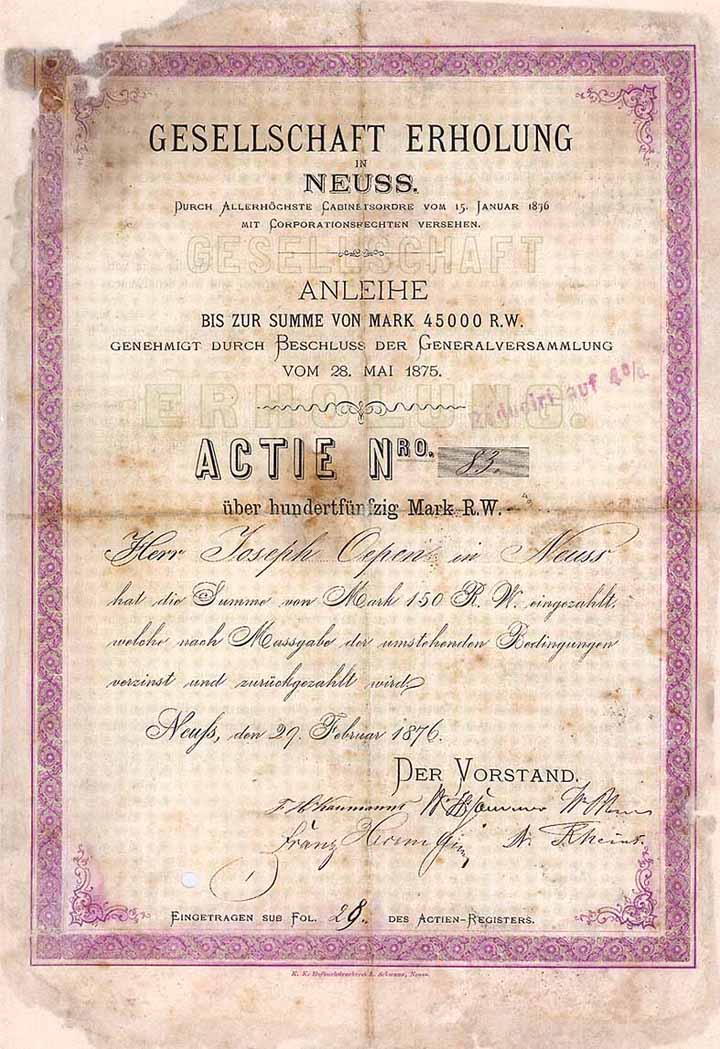 GESELLSCHAFT ERHOLUNG
IN
NEUSS.
DURCH ALLERHÖCHSTE CABINETSORDRE VOM 15. JANUAR 1836
MIT CORPORATIONSRECHTEN VERSEHEN.
GESELLSCHAFT
ANLEIHE
BIS ZUR SUMME VON MARK 45000 R.W.
GENEHMIGT DURCH BESCHLUSS DER GENERALVERSAMMLUNG
VOM 28. MAI 1875.
Reducirt auf 4%
ERHOLUNG.
ACTIE NRO. 83.
über hundertfünfzig Mark R.W.
Herr Joseph Oepen in Neuss
hat die Summe von Mark 150 R. W. eingezahlt,
welche nach Massgabe der umstehenden Bedingungen
verzinst und zurückgezahlt wird.
Neuß, den 29. Februar 1876.
DER VORSTAND.
Franz
N. Rheins
EINGETRAGEN SUB FOL. 28. DES ACTIEN-REGISTERS.
K. K. Hofbuchdruckerei L. Schwann, Neuss.